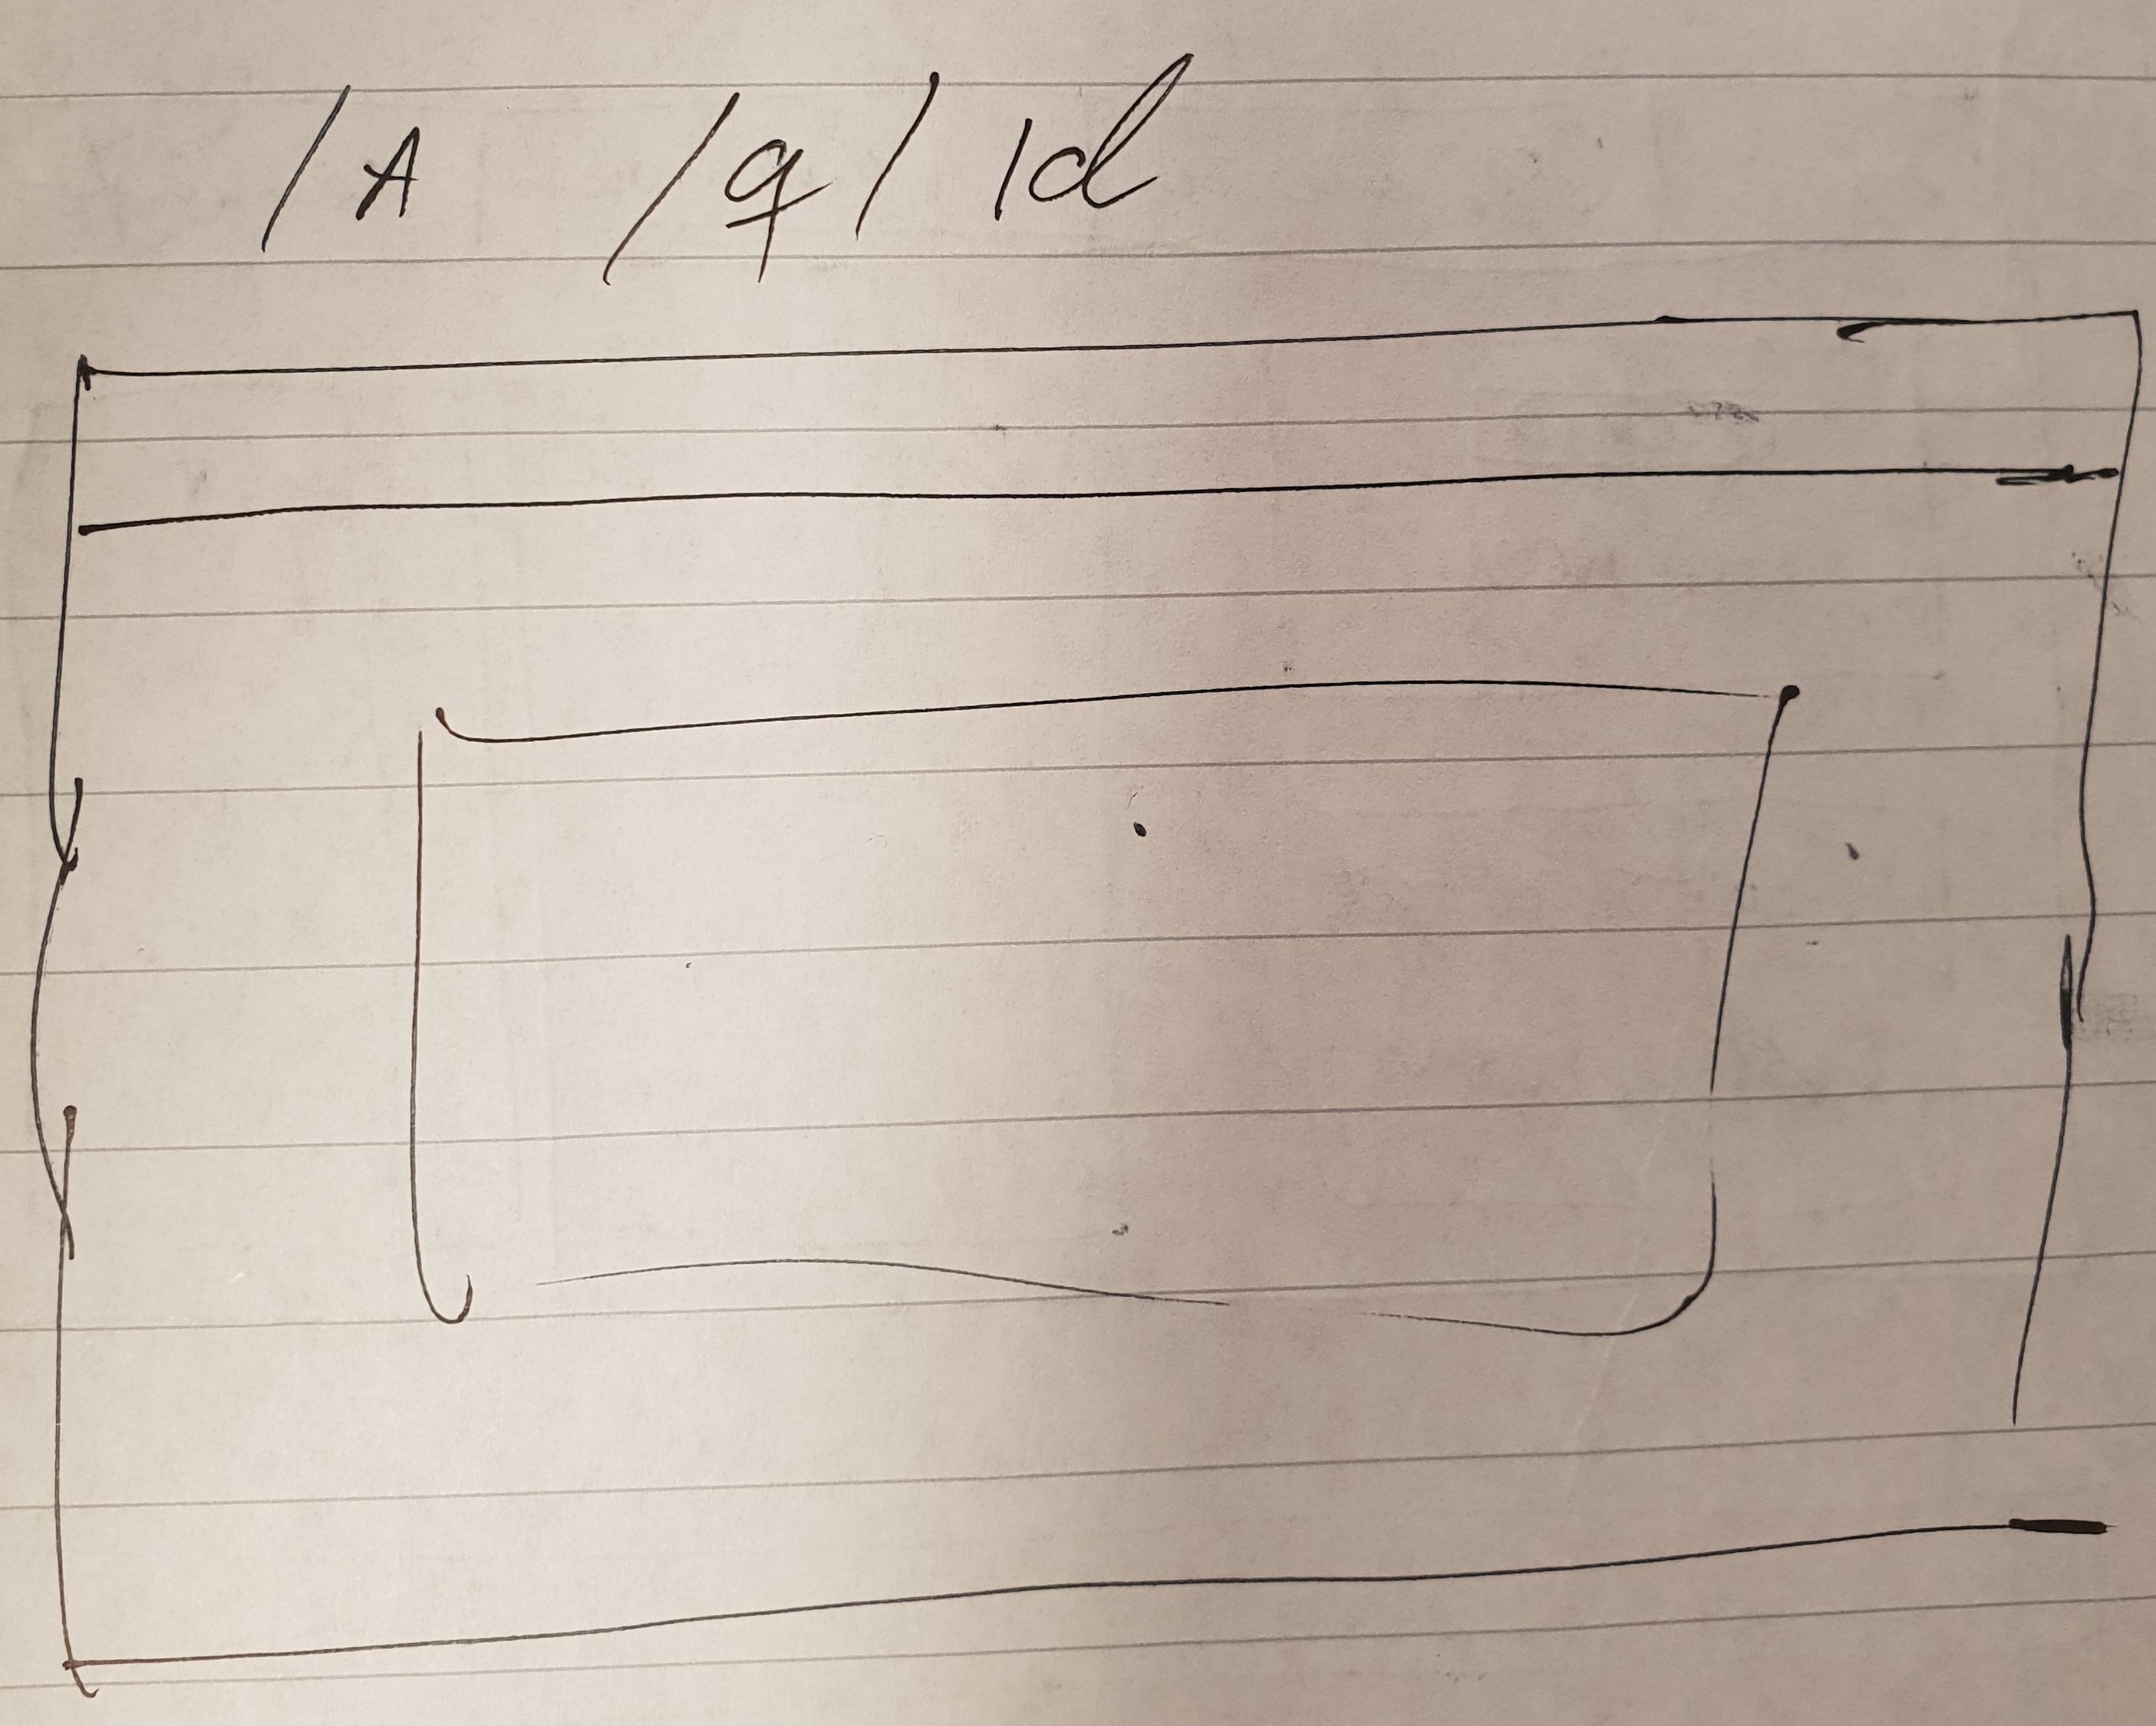 /A /q/ id